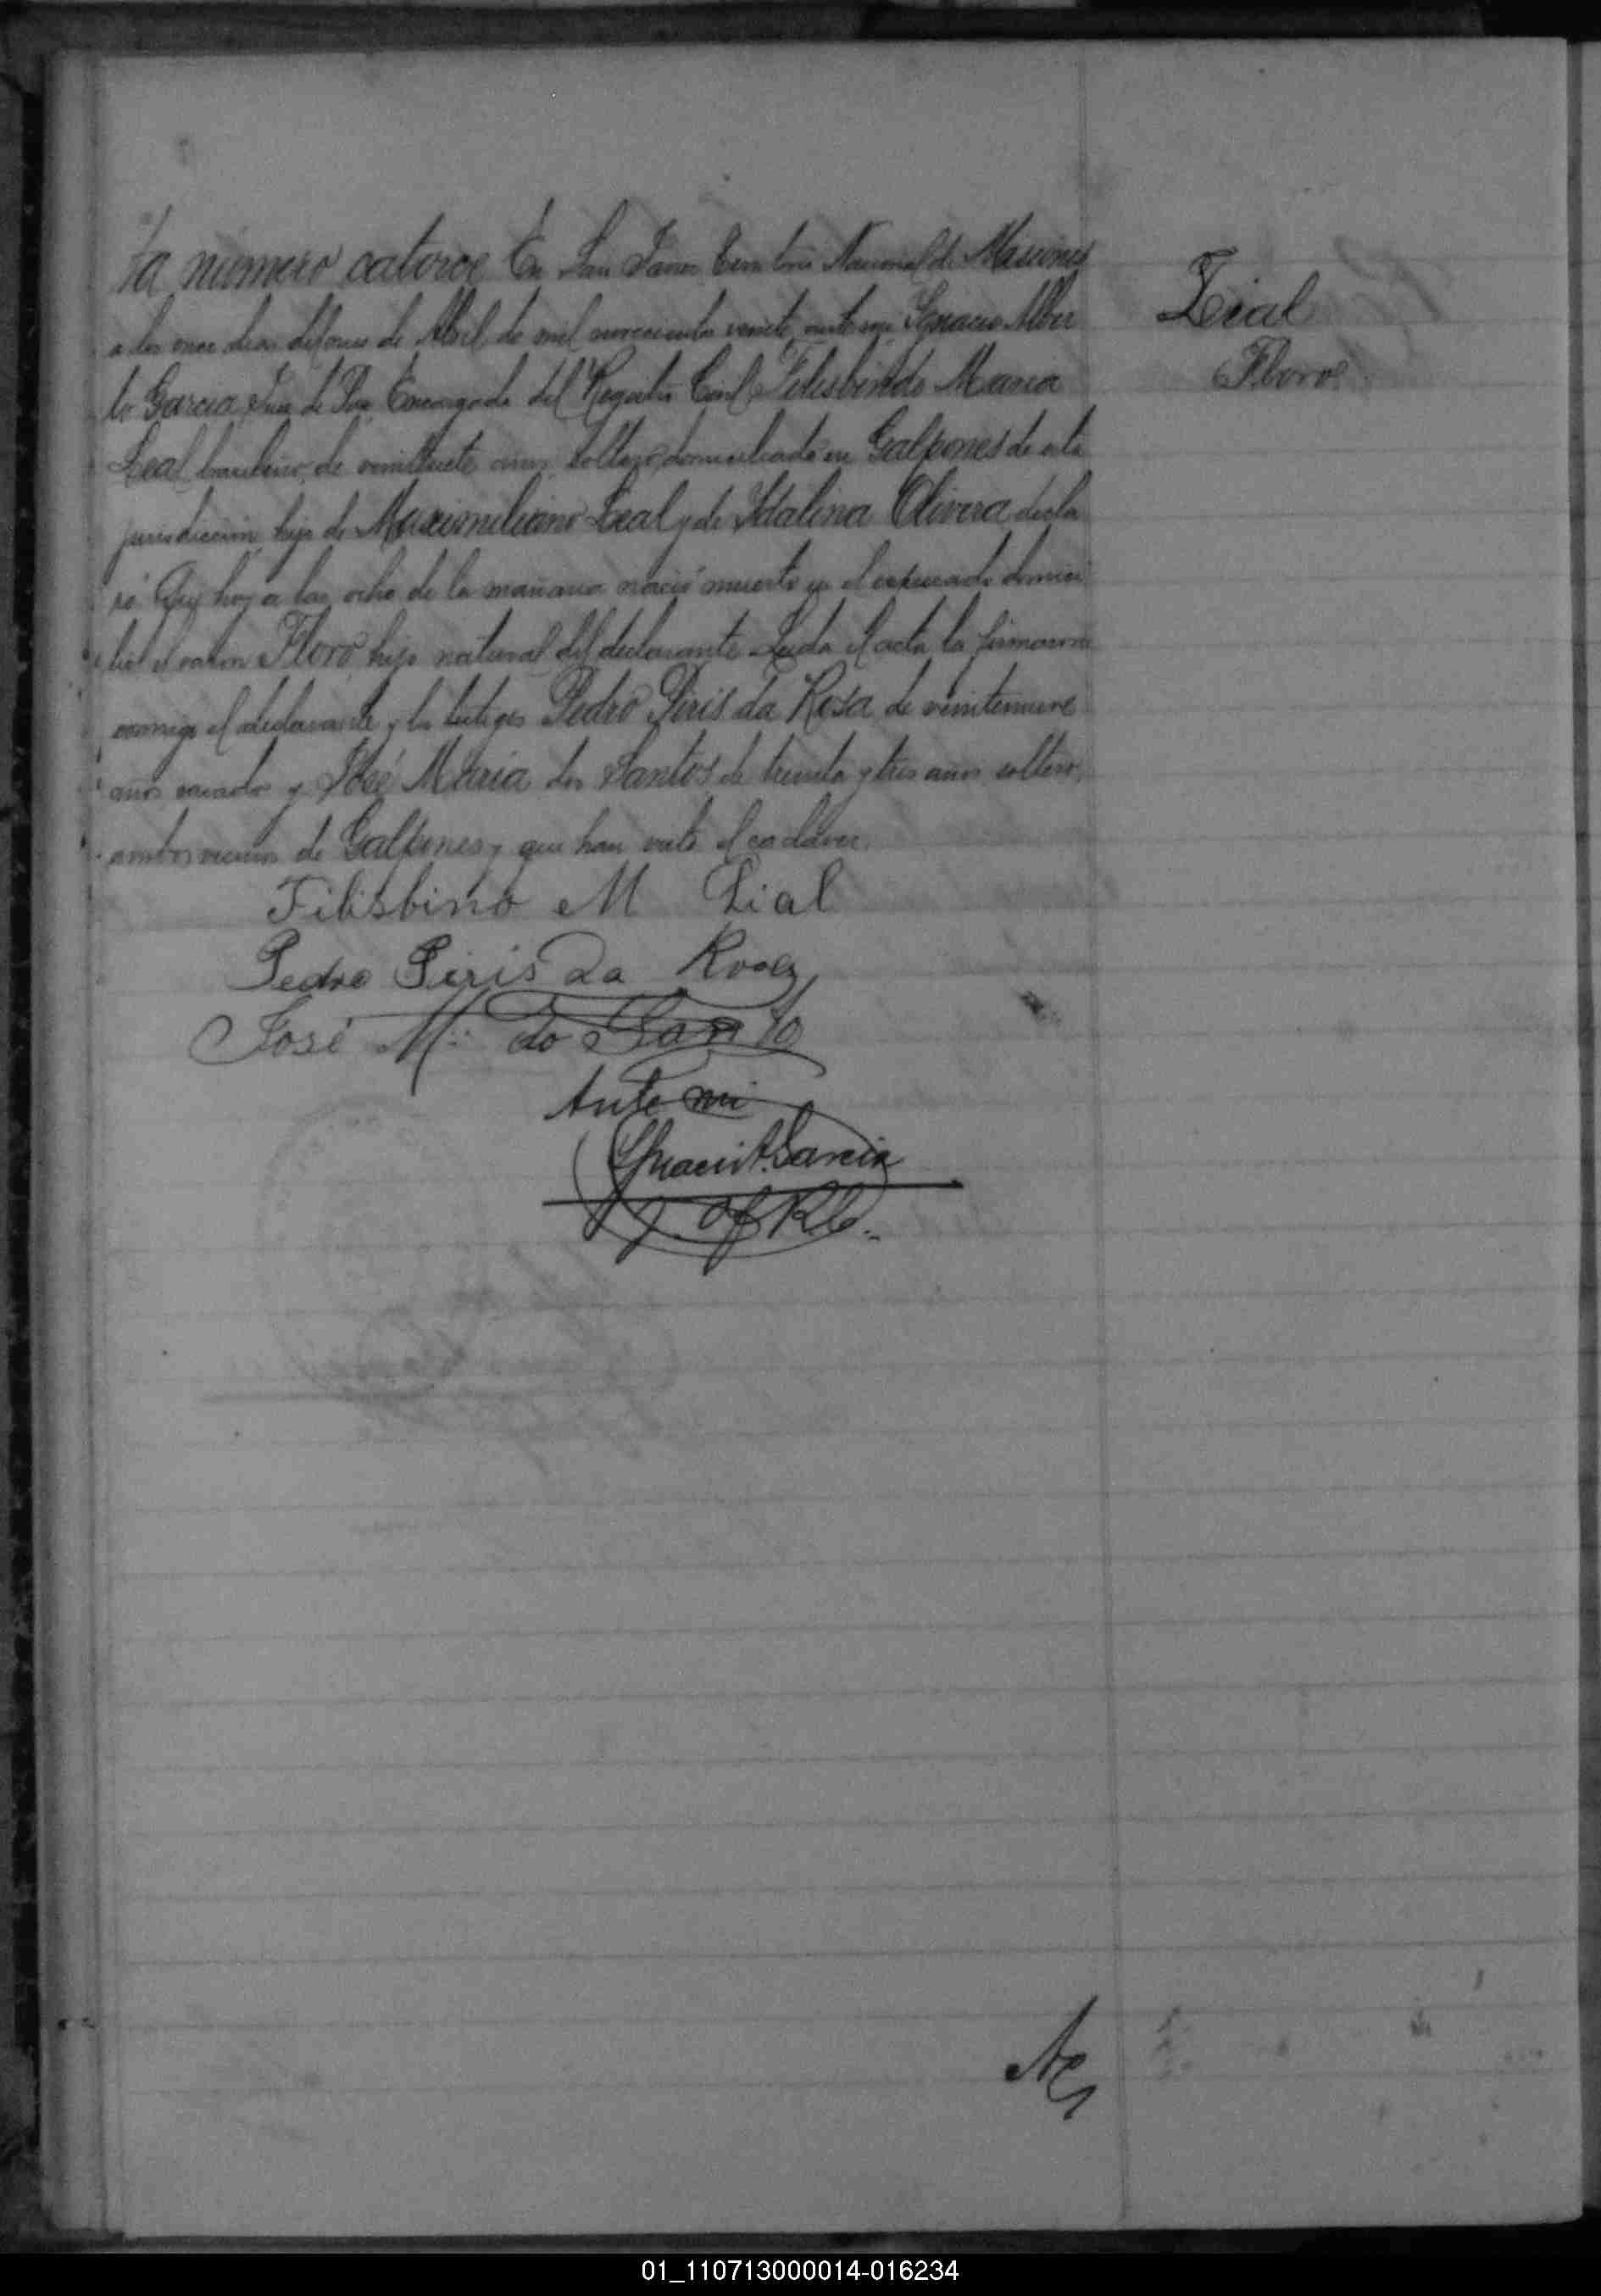 ta número catorce En San Javier Territorio Nacional de Misiones
a los once dias del mes de Abril de mil novecientos veinte, ante mi Ignacio Alber
to Garcia, Juez de Paz Encargado del Registro Civil Felisbindo Maria
Leal, brasilero, de veintisiete años, soltero, domiciliado en Galpones de esta
jurisdiccion, hijo de Maximiliano Leal y de Idalina Olivera, decla
ró: Que hoy a las ocho de la mañana nació muerto en el expresado domici
lio el varon Floro hijo natural del declarante Leida el acta la firmaron
conmigo el declarante y los testigos Pedro Piris da Rosa, de veintinueve
años casado y José Maria dos Santos de treinta y tres años soltero,
ambos vecinos de Galpones y que han visto el cadáver.
Filisbino M Lial
Pedro Piris da Rosa
José Mª do Santo
Ante mi
Ignacio A. Garcia
J. Of R C.
Leial
Floro
01_110713000014-016234